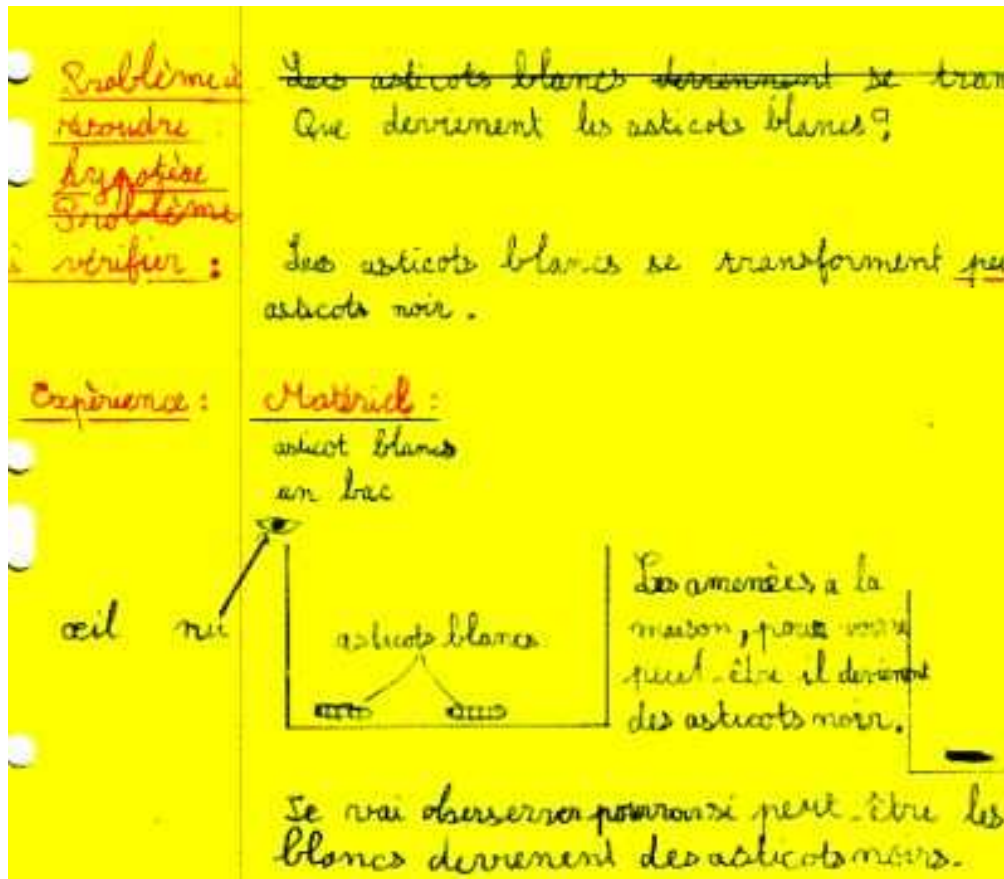 Problème à
résoudre
hypotèse
Problème
à vérifier :
Les asticots blancs deviennent se tran
Que devienent les asticots blancs?
Les asticots blancs se transforment peu
asticots noir.
Expèrience :
Matèriel :
asticot blancs
un bac
œil nu
asticots blancs
Les amenèes a la
maison, pour voir si
peut-être il devienent
des asticots noir.
Je vai obersever pour voir si peut-être les
blancs devienent des asticots noirs.